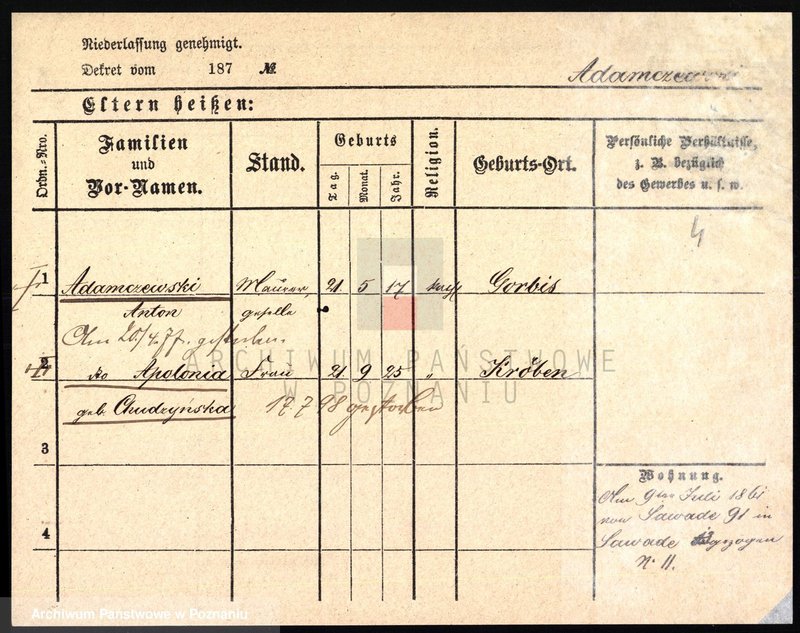 Niederlassung genehmigt.
Dekret vom 187 №
Adamczewski
Eltern heißen:
Ordn.-Nro.
Familien und Vor-Namen.
Stand.
Geburts
Tag.
Monat.
Jahr.
Religion.
Geburts-Ort.
Persönliche Verhältnisse, z. B. bezüglich des Gewerbes u. s. w.
4
1 Adamczewski Maurer, 21 5 17 kath Gorbis
Anton geselle
Am 20/4.77. gestorben.
2 do Apolonia Frau 21 9 25 " Kröben
geb. Chudzyńska 17 7 98 gestorben
3
4
Wohnung.
Am 9ten Juli 1861
von Sawade 91 in
Sawade gezogen
N. 11.
ARCHIWUM PAŃSTWOWE
W POZNANIU
Archiwum Państwowe w Poznaniu